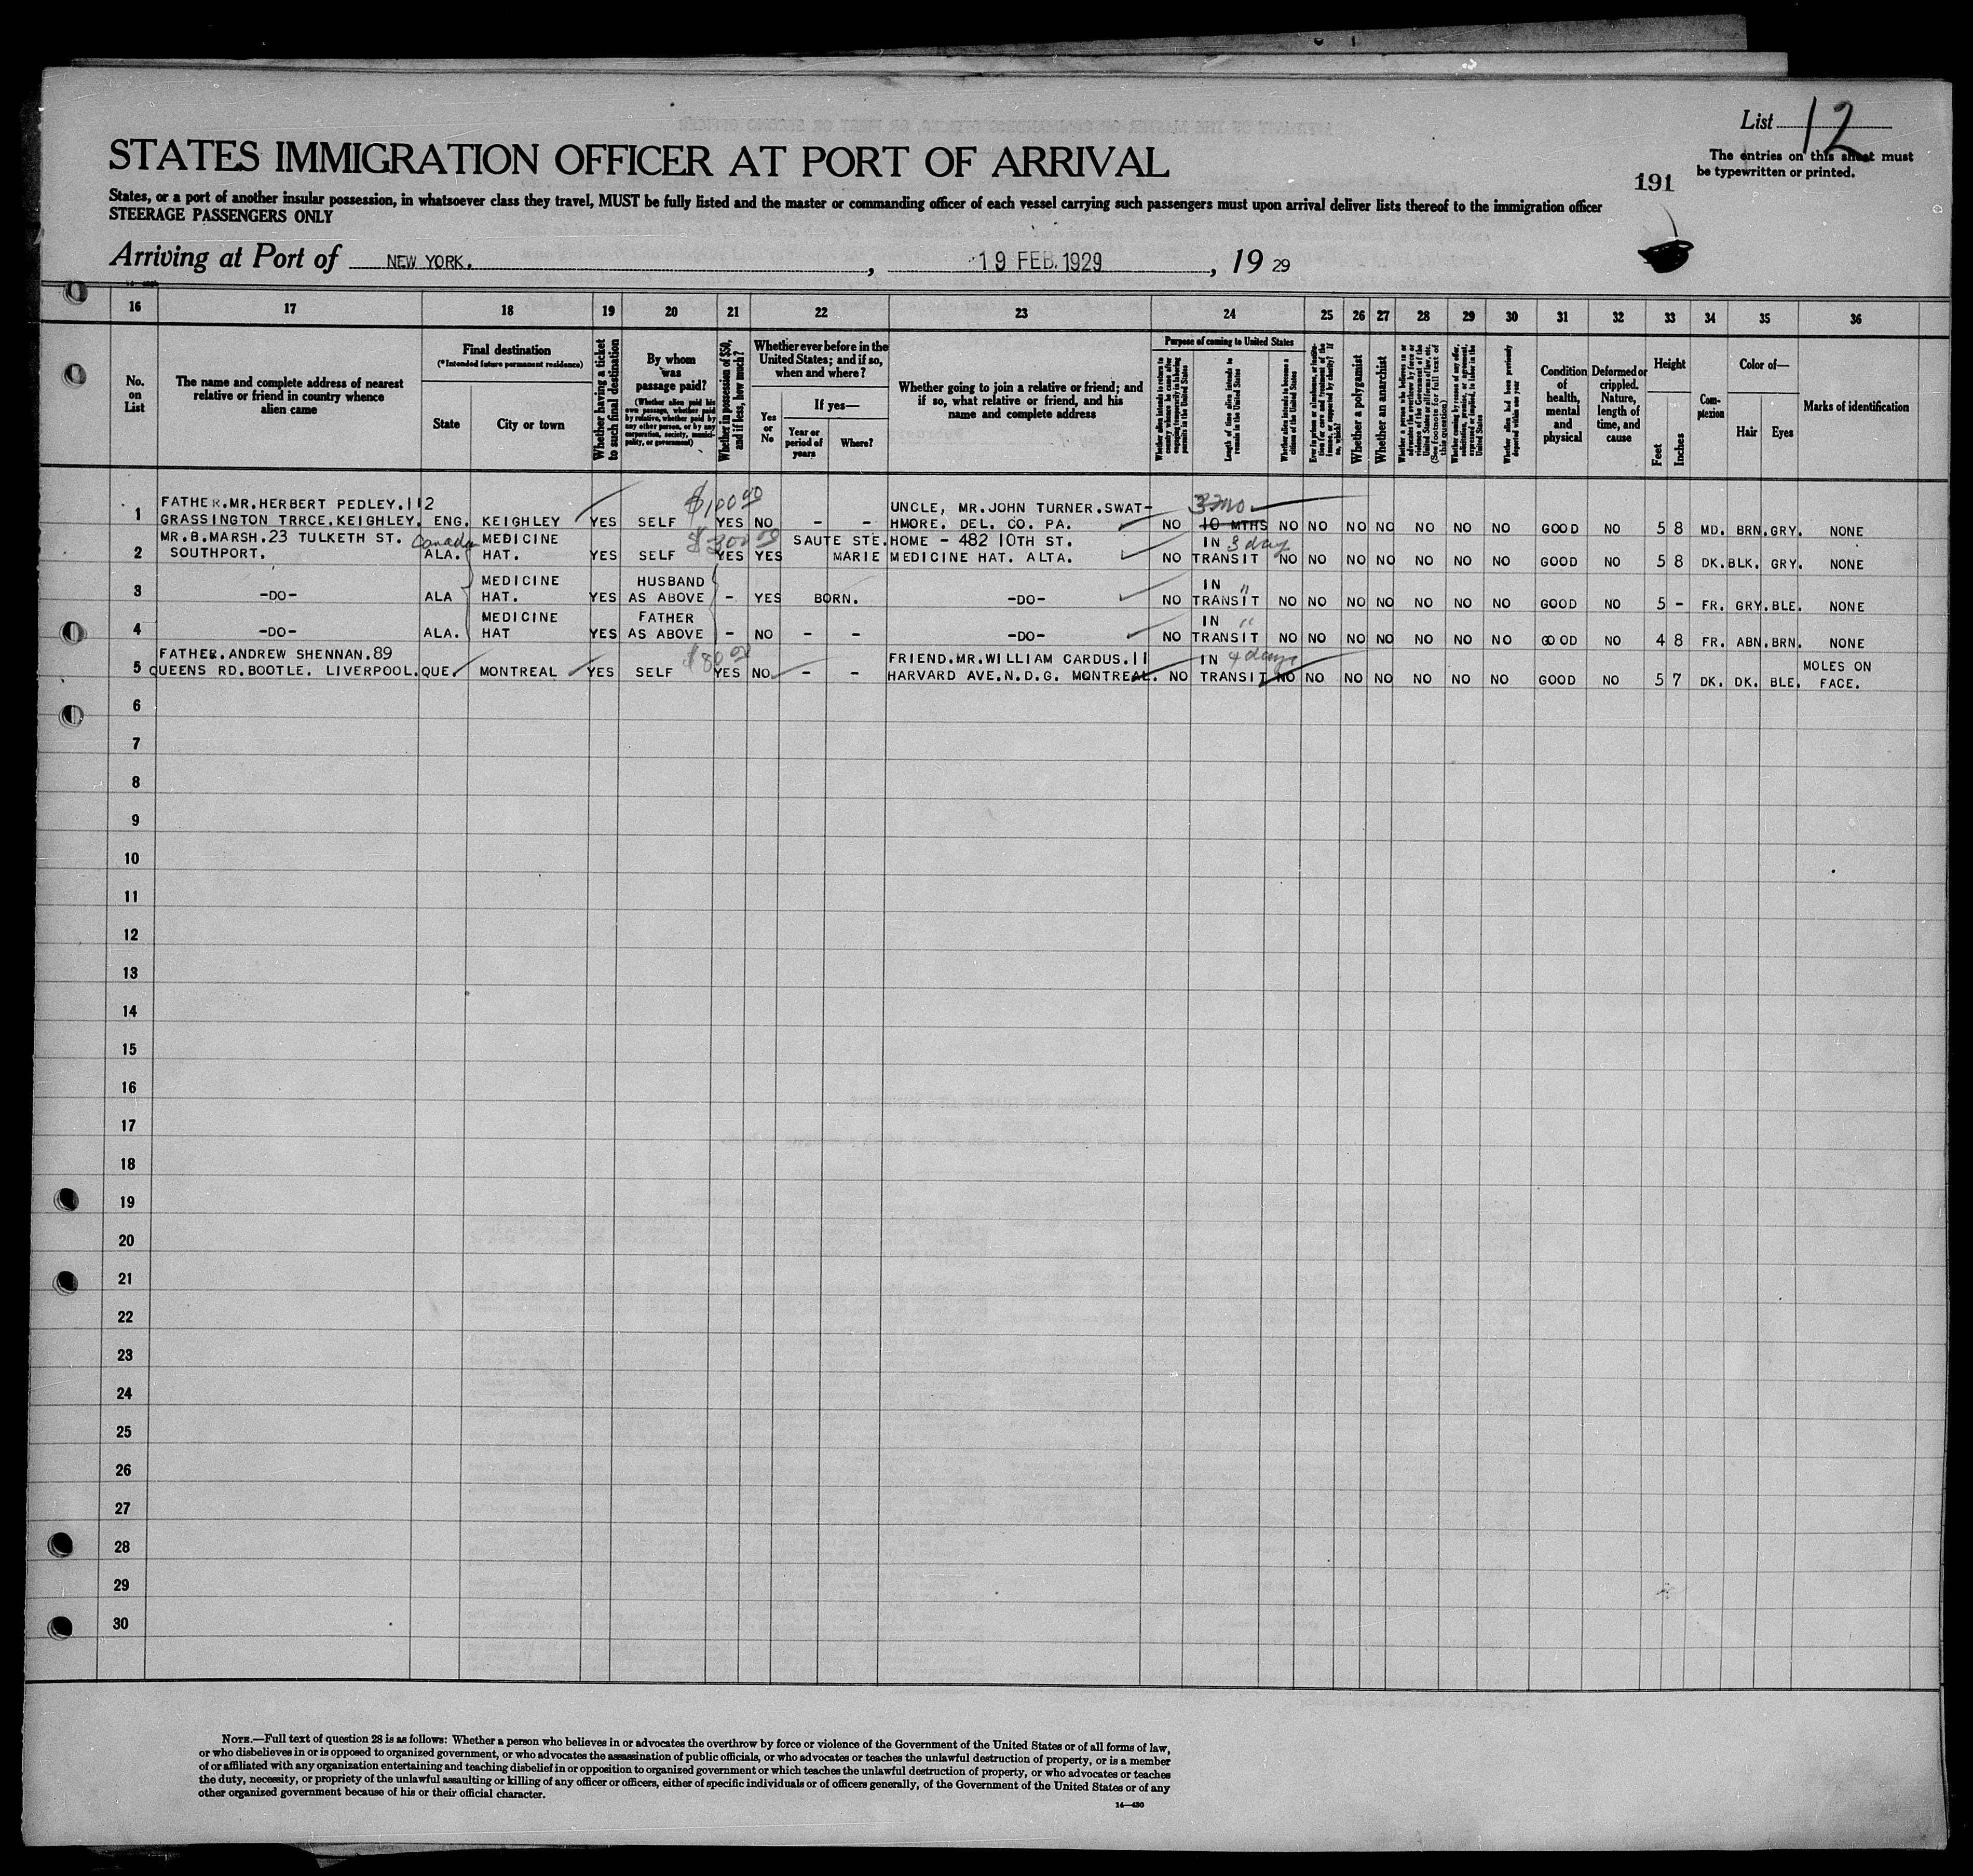 List 12
The entries on this sheet must
be typewritten or printed.
191
STATES IMMIGRATION OFFICER AT PORT OF ARRIVAL
States, or a port of another insular possession, in whatsoever class they travel, MUST be fully listed and the master or commanding officer of each vessel carrying such passengers must upon arrival deliver lists thereof to the immigration officer
STEERAGE PASSENGERS ONLY
Arriving at Port of NEW YORK. , 19 FEB. 1929 , 19 29
16 17 18 19 20 21 22 23 24 25 26 27 28 29 30 31 32 33 34 35 36
No. on List
The name and complete address of nearest relative or friend in country whence alien came
Final destination
(*Intended future permanent residence)
State
City or town
Whether having a ticket to such final destination
By whom was passage paid?
(Whether alien paid his own passage, whether paid by relative, whether paid by any other person, or by any corporation, society, municipality, or government)
Whether in possession of $50, and if less, how much?
Whether ever before in the United States; and if so, when and where?
Yes or No
If yes—
Year or period of years
Where?
Whether going to join a relative or friend; and if so, what relative or friend, and his name and complete address
Purpose of coming to United States
Whether alien intends to return to country whence he came after engaging temporarily in laboring pursuits in the United States
Length of time alien intends to remain in the United States
Whether alien intends to become a citizen of the United States
Whether a polygamist
Whether an anarchist
Whether alien had been previously deported within one year
Condition of health, mental and physical
Deformed or crippled. Nature, length of time, and cause
Height
Feet
Inches
Complexion
Color of—
Hair
Eyes
Marks of identification
FATHER.MR.HERBERT PEDLEY.112 $100 00 UNCLE, MR.JOHN TURNER.SWAT- 3 mo
1 GRASSINGTON TRRCE.KEIGHLEY. ENG. KEIGHLEY YES SELF YES NO - - HMORE. DEL. CO. PA. NO 10 MTHS NO NO NO NO NO NO NO GOOD NO 5 8 MD. BRN. GRY. NONE
MR.B.MARSH.23 TULKETH ST. Canada MEDICINE $300 00 SAUTE STE. HOME - 482 10TH ST. IN 3 day
2 SOUTHPORT. ALA. HAT. YES SELF YES YES MARIE MEDICINE HAT. ALTA. NO TRANSIT NO NO NO NO NO NO NO GOOD NO 5 8 DK. BLK. GRY. NONE
MEDICINE HUSBAND IN "
3 -DO- ALA HAT. YES AS ABOVE - YES BORN. -DO- NO TRANSIT NO NO NO NO NO NO NO GOOD NO 5 - FR. GRY. BLE. NONE
MEDICINE FATHER IN "
4 -DO- ALA. HAT YES AS ABOVE - NO - - -DO- NO TRANSIT NO NO NO NO NO NO NO GOOD NO 4 8 FR. ABN. BRN. NONE
FATHER.ANDREW SHENNAN.89 $80 00 FRIEND.MR.WILLIAM CARDUS.11 IN 4 days MOLES ON
5 QUEENS RD.BOOTLE. LIVERPOOL. QUE. MONTREAL YES SELF YES NO - - HARVARD AVE.N.D.G. MONTREAL. NO TRANSIT NO NO NO NO NO NO NO GOOD NO 5 7 DK. DK. BLE. FACE.
6
7
8
9
10
11
12
13
14
15
16
17
18
19
20
21
22
23
24
25
26
27
28
29
30
NOTE.—Full text of question 28 is as follows: Whether a person who believes in or advocates the overthrow by force or violence of the Government of the United States or of all forms of law,
or who disbelieves in or is opposed to organized government, or who advocates the assassination of public officials, or who advocates or teaches the unlawful destruction of property, or is a member
of or affiliated with any organization entertaining and teaching disbelief in or opposition to organized government or which teaches the unlawful destruction of property, or who advocates or teaches
the duty, necessity, or propriety of the unlawful assaulting or killing of any officer or officers, either of specific individuals or of officers generally, of the Government of the United States or of any
other organized government because of his or their official character.
14—430